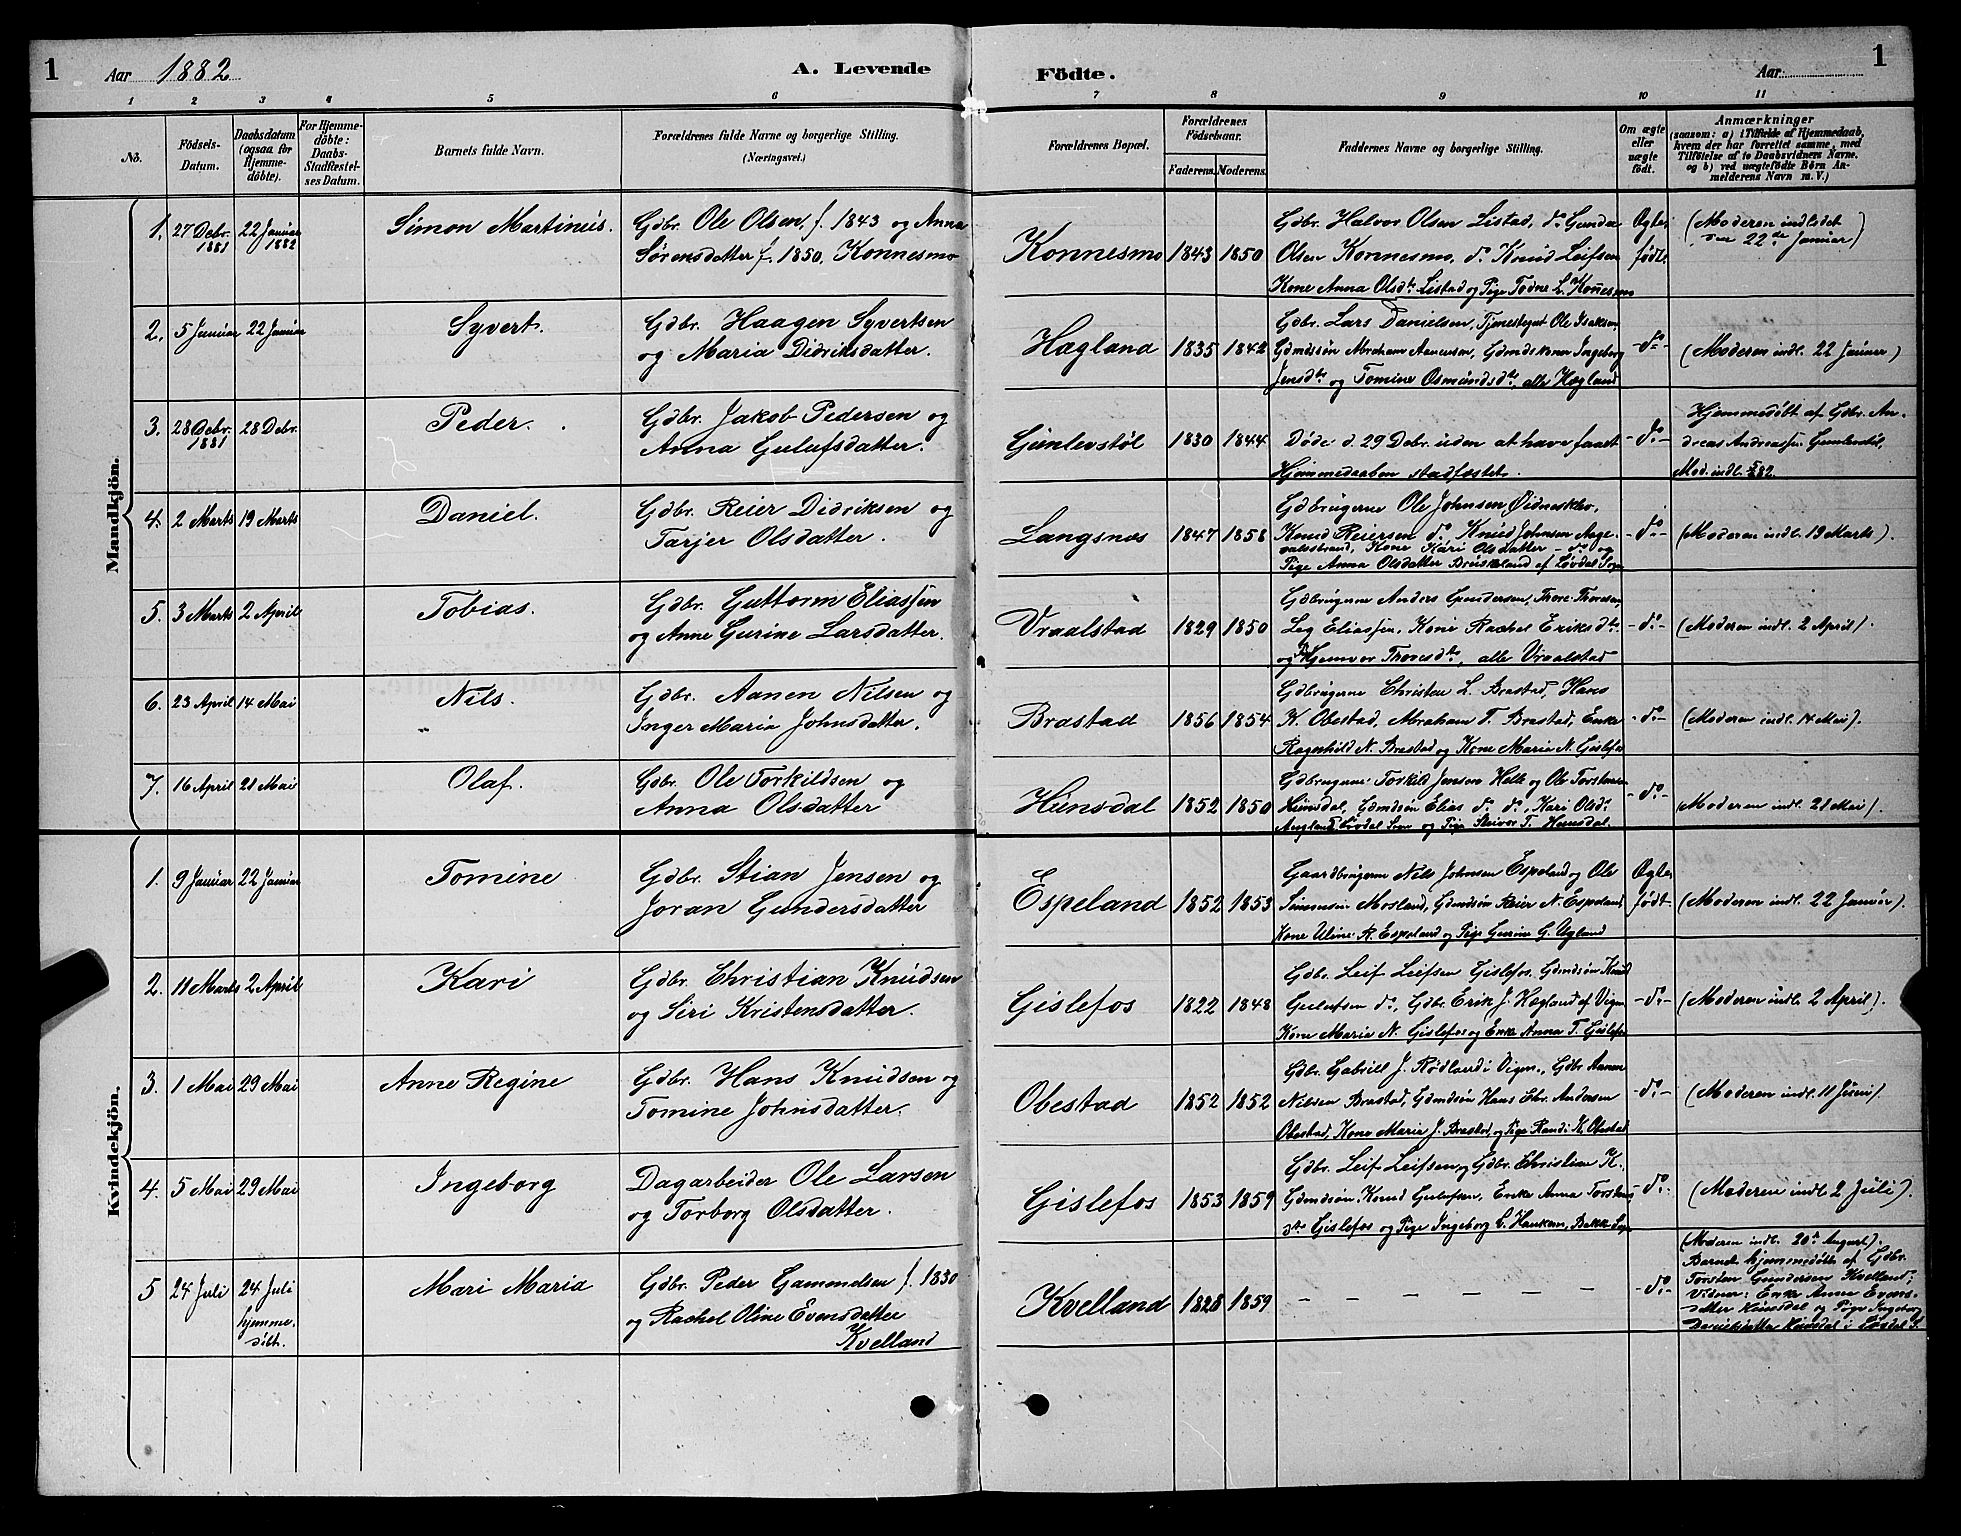 1 Aar 1882 A. Levende Födte. Aar 1
1 2 3 4 5 6 7 8 9 10 11
No.
Födsels-
Datum.
Daabsdatum
(ogsaa for
Hjemme-
döbte).
For Hjemme-
döbte:
Daabs-
Stadfæstel-
ses Datum.
Barnets fulde Navn.
Forældrenes fulde Navne og borgerlige Stilling.
(Næringsvei.)
Forældrenes Bopæl.
Forældrenes
Födselsaar.
Faderens. Moderens.
Faddernes Navne og borgerlige Stilling.
Om ægte
eller
uægte
födt.
Anmærkninger
(saasom: a) i Tilfælde af Hjemmedaab,
hvem der har forrettet samme, med
Tilföielse af to Daabsvidners Navne,
og b) ved uægtefödte Börn An-
melderens Navn m. V.)
Mandkjön.
1. 27 Debr. 1881 22 Januar 1882
Simon Martinus.
Gdbr. Ole Olsen, f. 1843 og Anna
Sørensdatter f. 1850, Konnesmo
Konnesmo 1843 1850
Gdbr. Halvor Olsen Listad, do Gunda
Olsen Konnesmo, do Knud Leifsen
Kone Anna Olsdtr Listad og Pige Todne L. Konesmo
Ægte
født.
(Moderen indledet
22de Januar)
2. 5 Januar 22 Januar
Syvert.
Gdbr. Haagen Syvertsen
og Maria Didriksdatter.
Hagland 1835 1842
Gdbr. Lars Danielsen, Tjenestegut Ole Isaksen
Gdmdssøn Abraham Aanensen, Gdmdskone Ingeborg
Jensdtr og Tomine Osmundsdtr, alle Hægland
- do -
(Moderen indl. 22 Januar)
3. 28 Debr. 1881 28 Debr.
Peder.
Gdbr. Jakob Pedersen og
Anna Gulufsdatter.
Gunlevstøl 1830 1844
Døde d. 29 Debr. uden at have faaet
Hjemmedaaben stadfæstet.
- do -
Hjemmedøbt af Gdbr. An-
dreas Andreassen Gunlevstøl,
Mod. indl.
4. 2 Marts 19 Marts
Daniel.
Gdbr. Reier Didriksen og
Tarjer Olsdatter.
Langsnæs 1847 1858
Gdbrugerne Ole Johnsen Øidnesklev,
Knud Reiersen do. Knud Johnsen Aage-
valsstrand, Kone Kari Olsdatter - do og
Pige Anna Olsdatter Bruskeland af Løvdal Sogn
- do -
(Moderen indl. 19 Marts).
5. 3 Marts 2 April
Tobias.
Gdbr. Guttorm Eliassen
og Anne Gurine Larsdatter.
Vraalstad 1829 1850
Gdbrugerne Anders Gundersen, Thore Thoresen,
Leg Eliassen, Kone Rachel Eriksdtr.
og Gunvor Thoresdtr, alle Vraalstad
- do -
(Moderen indl. 2 April).
6. 23 April 14 Mai
Nils.
Gdbr. Aanen Nilsen og
Inger Maria Johnsdatter.
Brastad 1856 1854
Gdbrugerne Christen L. Brastad, Hans
K. Obestad, Abraham T. Brastad, Enke
Ragnhild N. Brastad og Kone Maria N. Gislefos
- do -
(Moderen indl. 14 Mai).
7. 16 April 21 Mai
Olaf.
Gdbr. Ole Torkildsen og
Anna Olsdatter
Hunsdal 1852 1850
Gdbrugerne Torkild Jensen Halk og Ole Torstensen
Hunsdal, Gdmdsøn Elias do do, Kari Olsd.
Augland Løvdal Sogn og Pige T. Hunsdal.
- do -
(Moderen indl. 21 Mai).
Kvindekjön.
1. 9 Januar 22 Januar
Tomine
Gdbr. Stian Jensen og
Joran Gundersdatter
Espeland 1852 1853
Gaardbrugerne Nils Johnsen Espeland og Ole
Simonsen Mosland, Gdmdsøn Reier N. Espeland
Kone Uline R. Espeland og Pige Gurine G. Ugland
Ægte
født.
(Moderen indl. 22 Januar).
2. 11 Marts 2 April
Kari
Gdbr. Christian Knudsen
og Siri Kristensdatter.
Gislefos 1822 1848
Gdbr. Leif Leifsen Gislefos, Gdmdsøn Knud
Gulufsen do, Gdbr. Erik J. Hægland af Vigm.
Kone Maria N. Gislefos og Enke Anna T. Gislefos
- do -
(Moderen indl. 2 April).
3. 1 Mai 29 Mai
Anne Regine
Gdbr. Hans Knudsen og
Tomine Johnsdatter.
Obestad 1852 1852
Gdbr. Gabriel J. Rødland i Vigm., Gdbr. Aanen
Nilsen Brastad, Gdmdsøn Hans Chr. Andersen
Obestad, Kone Maria J. Brastad, og Pige Randi K. Obestad
- do -
(Moderen indl. 11 Juni).
4. 5 Mai 29 Mai
Ingeborg
Dagarbeider Ole Larsen
og Torborg Olsdatter.
Gislefos 1853 1859
Gdbr. Leif Leifsen, og Gdbr. Christian K.,
Gdmdsøn Knud Gulufsen, Enke Anna Torstens-
dtr Gislefos og Pige Ingeborg C. Haukom, Bakke Sogn
- do -
(Moderen indl. 2 Juli).
5 24 Juli 24 Juli
hjemme-
døbt.
Mari Maria
Gdbr. Peder Gammelsen f. 1830
og Rachel Oline Evensdatter
Kvelland
Kvelland 1828 1859
- - - - - -
- do -
(Moderen indl. 20de August).
Barnet hjemmedøbt af Gdbr.
Torsten Gundersen Kvelland;
Vidner: Enke Anne Evens-
datter Hunsdal og Pige Ingeborg
Danielsdatter Hunsdal i Løvdal S.